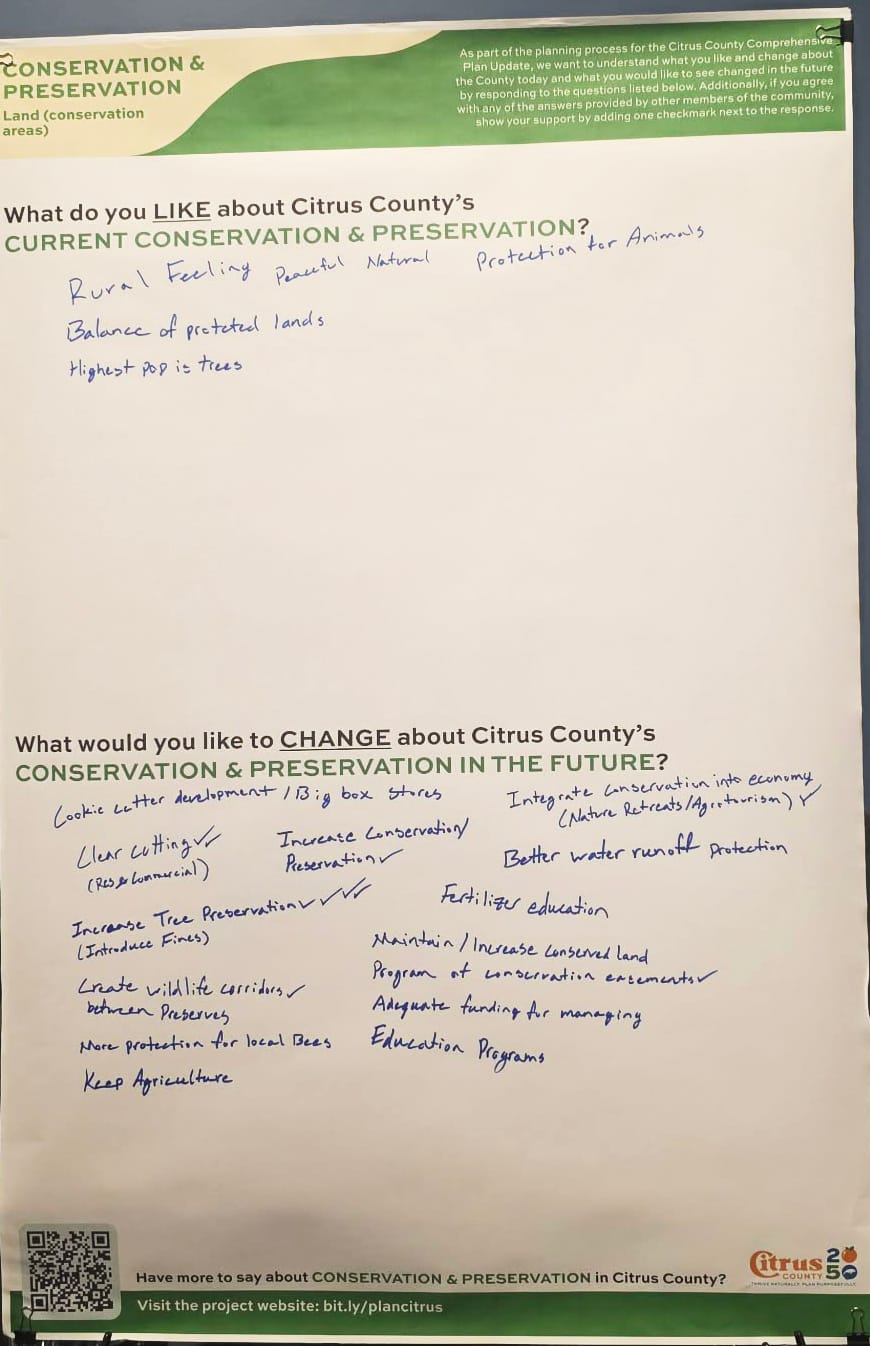 CONSERVATION &
PRESERVATION
Land (conservation
areas)
As part of the planning process for the Citrus County Comprehensive
Plan Update, we want to understand what you like and change about
the County today and what you would like to see changed in the future
by responding to the questions listed below. Additionally, if you agree
with any of the answers provided by other members of the community,
show your support by adding one checkmark next to the response.
What do you LIKE about Citrus County's
CURRENT CONSERVATION & PRESERVATION?
Rural Feeling Peaceful Natural Protection for Animals
Balance of protcted lands
Highest pop is trees
What would you like to CHANGE about Citrus County's
CONSERVATION & PRESERVATION IN THE FUTURE?
Cookie cutter development / Big box stores
Integrate conservation into economy
(Nature Retreats/Agrotourism) ✓
Clear cutting ✓✓
(Res & Commercial)
Increase Conservation/
Preservation ✓
Better water runoff protection
Increase Tree Preservation ✓✓✓✓
(Introduce Fines)
Fertilizer education
Maintain / Increase conserved land
Program of conservation easements ✓
Create wildlife corridors ✓
between Preserves
Adequate funding for managing
More protection for local Bees
Education Programs
Keep Agriculture
Have more to say about CONSERVATION & PRESERVATION in Citrus County?
Visit the project website: bit.ly/plancitrus
Citrus
COUNTY
2050
THRIVE NATURALLY. PLAN PURPOSEFULLY.